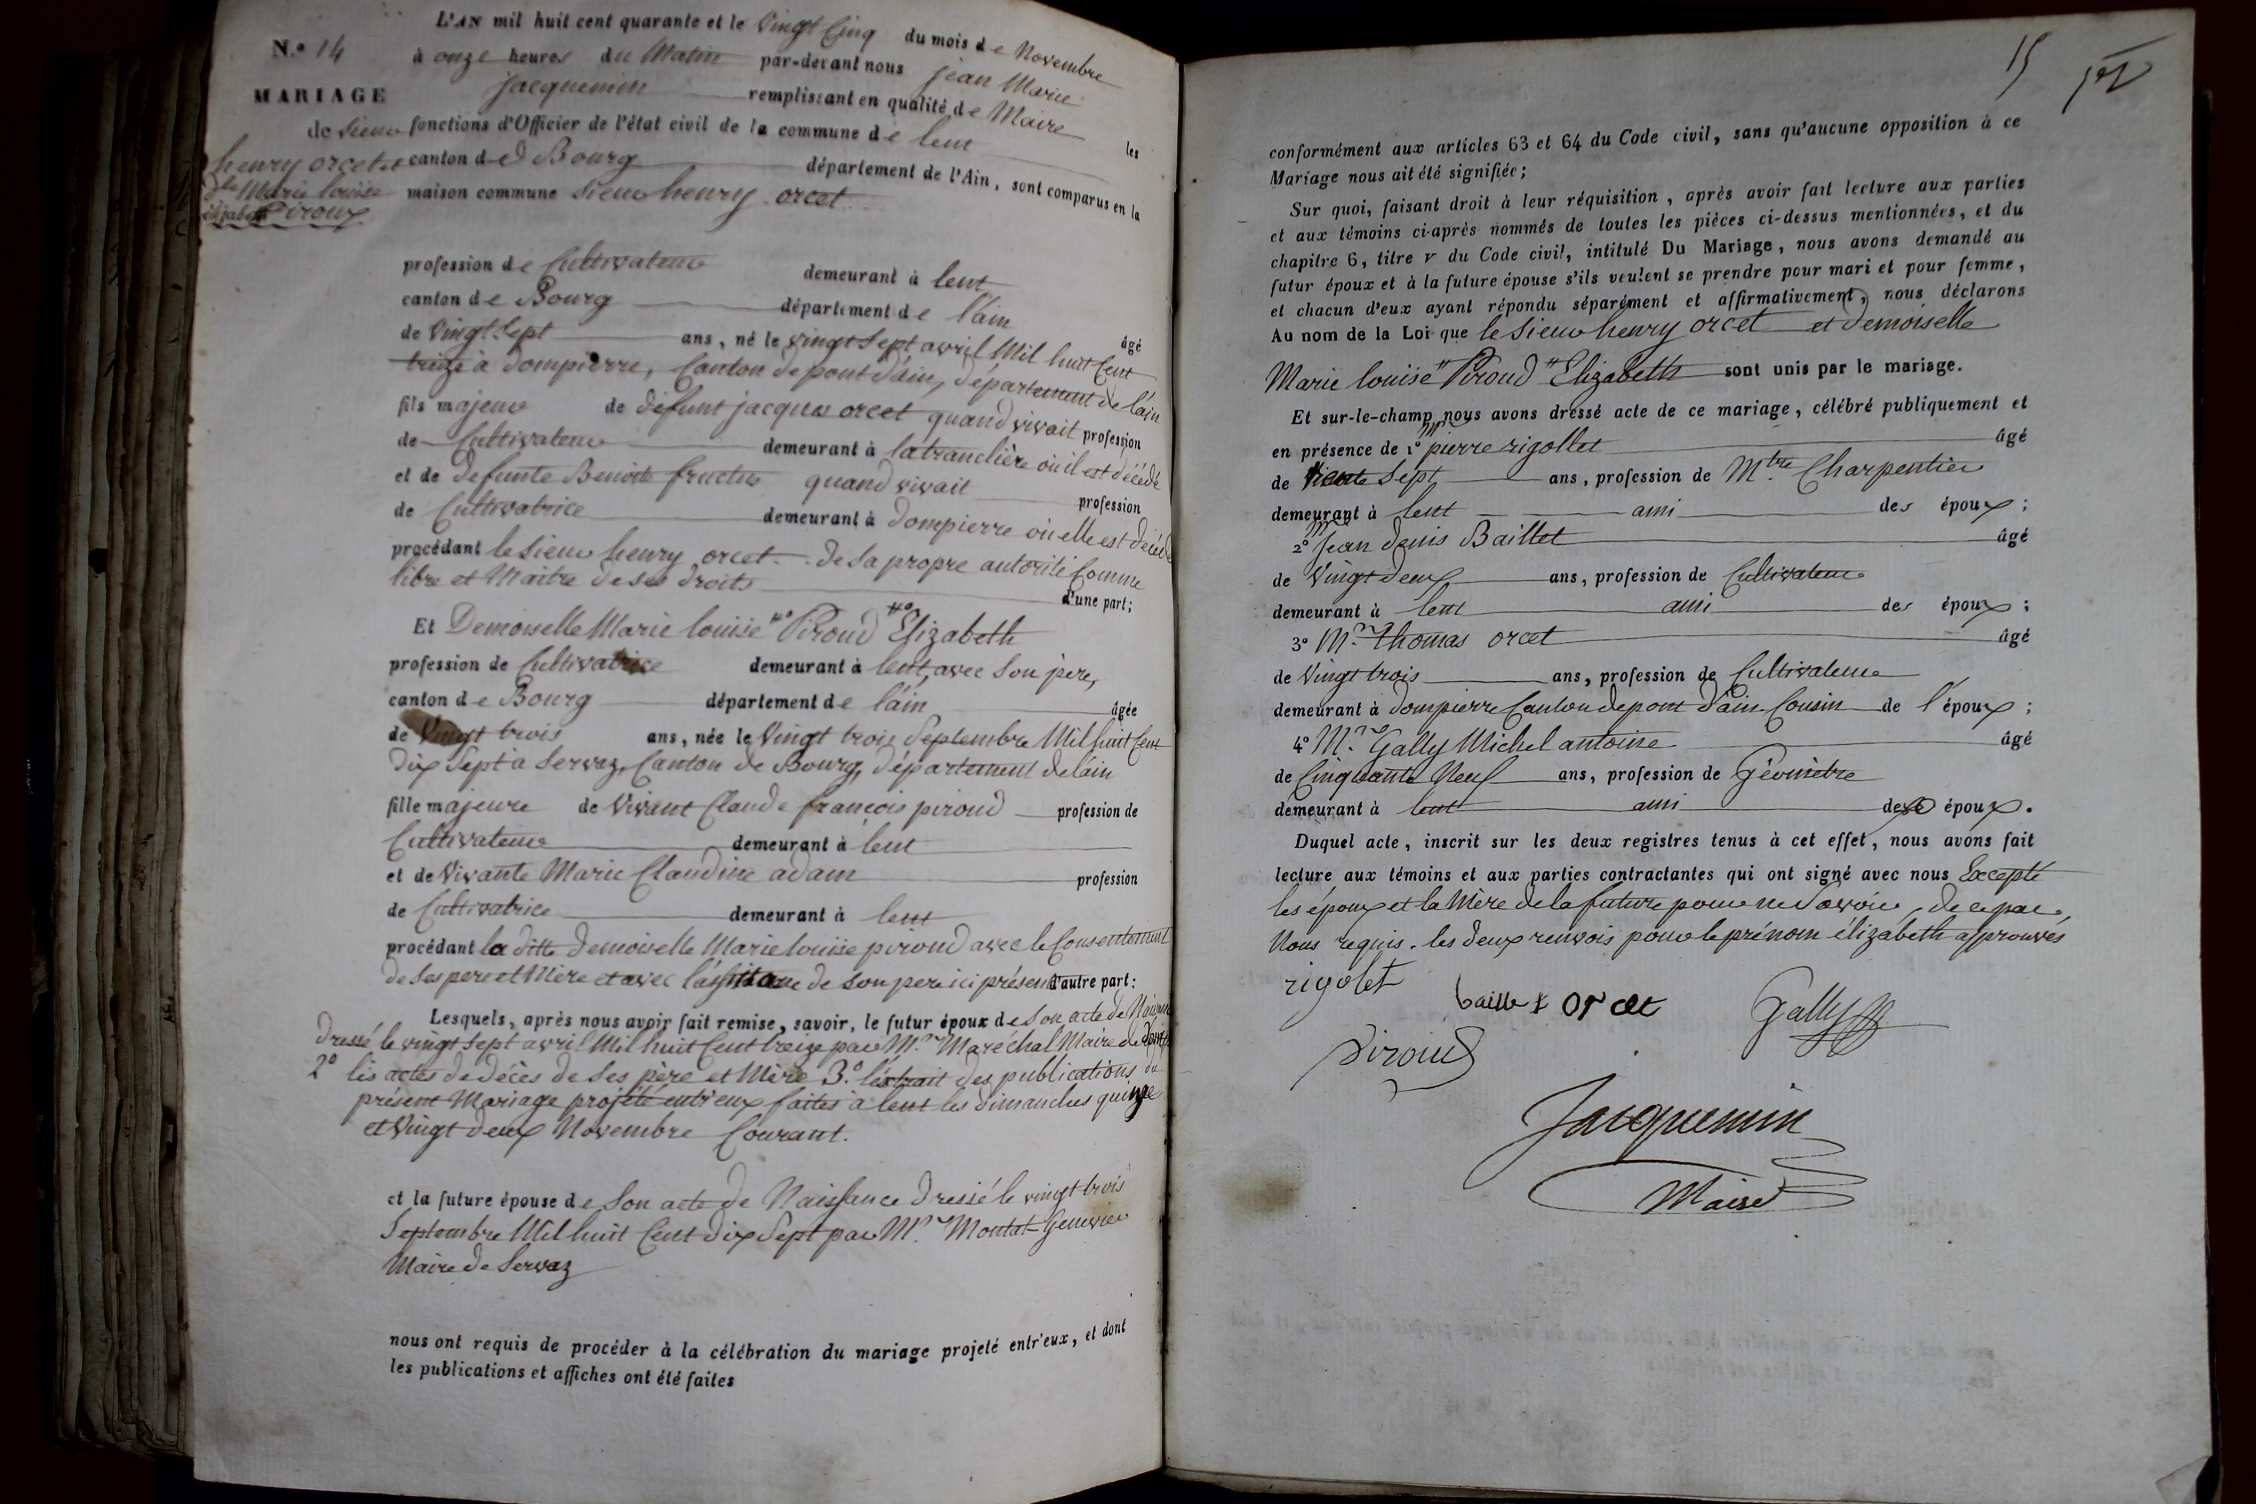 N.o 14
MARIAGE
de Sieur
henry orcet et
Dlle Marie louise
élizabeth Piroux
L'AN mil huit cent quarante et le Vingt Cinq du mois de Novembre
à onze heures du Matin par-devant nous jean Marie
jacquemin remplissant en qualité de Maire les
fonctions d'Officier de l'état civil de la commune de lent
canton de Bourg département de l'Ain, sont comparus en la
maison commune Sieur henry orcet
profession de Cultivateur demeurant à lent
canton de Bourg département de l'ain
âgé
de Vingt Sept ans, né le vingt Sept avril Mil huit Cent
treize à dompierre, Canton de pont d'ain, département de l'ain
fils majeur de défunt jacques orcet quand vivait profession
de Cultivateur demeurant à latranclière où il est décédé
et de defunte Benoite fructus quand vivait profession
de Cultivatrice demeurant à dompierre où elle est décédée
procédant le Sieur henry orcet de sa propre autorité Comme
libre et Maitre de ses droits d'une part;
Et Demoiselle Marie louise "Piroud "Elizabeth
profession de Cultivatrice demeurant à lent, avec Son père,
canton de Bourg département de l'ain âgée
de Vingt trois ans, née le Vingt trois Septembre Mil huit Cent
dix Sept à Servaz, Canton de Bourg, département de l'ain
fille majeure de Vivant Claude françois piroud profession de
Cultivateur demeurant à lent
et de Vivante Marie Claudine adam profession
de Cultivatrice demeurant à lent
procédant la ditte Demoiselle Marie louise piroud avec le Consentement
de Ses pere et Mère et avec l'assistance de Son pere ici présent d'autre part:
Lesquels, après nous avoir fait remise, savoir, le futur époux de Son acte de Naissance
dressé le vingt Sept avril Mil huit Cent treize par Mr Maréchal Maire de
2o les actes de décès de Ses père et Mère 3.o l'extrait des publications du
présent Mariage projeté entr'eux faites à lent les dimanches quinze
et Vingt deux Novembre Courant.
et la future épouse de Son acte de Naissance dressé le vingt trois
Septembre Mil huit Cent Dix Sept par Mr Montat Genevier
Maire de Servaz
nous ont requis de procéder à la célébration du mariage projeté entr'eux, et dont
les publications et affiches ont été faites
15
conformément aux articles 63 et 64 du Code civil, sans qu'aucune opposition à ce
Mariage nous ait été signifiée;
Sur quoi, faisant droit à leur réquisition, après avoir fait lecture aux parties
et aux témoins ci-après nommés de toutes les pièces ci-dessus mentionnées, et du
chapitre 6, titre v du Code civil, intitulé Du Mariage, nous avons demandé au
futur époux et à la future épouse s'ils veulent se prendre pour mari et pour femme,
et chacun d'eux ayant répondu séparément et affirmativement, nous déclarons
Au nom de la Loi que le Sieur henry orcet et demoiselle
Marie louise "Piroud "Elizabeth sont unis par le mariage.
Et sur-le-champ nous avons dressé acte de ce mariage, célébré publiquement et
en présence de 1o Mr pierre rigollet âgé
de trente Sept ans, profession de Mtre Charpentier
demeurant à lent ami des époux;
2o Mr Jean denis Baillet âgé
de Vingt deux ans, profession de Cultivateur
demeurant à lent ami des époux;
3o Mr Thomas orcet âgé
de Vingt trois ans, profession de Cultivateur
demeurant à dompierre Canton de pont d'ain Cousin de l'époux;
4o Mr Gally Michel antoine âgé
de Cinquante Neuf ans, profession de Géomètre
demeurant à lent ami des époux.
Duquel acte, inscrit sur les deux registres tenus à cet effet, nous avons fait
lecture aux témoins et aux parties contractantes qui ont signé avec nous Excepté
les époux et la Mère de la future pour ne Savoir, de ce par
Nous requis. les deux renvois pour le prénom élizabeth approuvés
rigolet
baillet orcet Gally
Piroud
Jacquemin
Maire